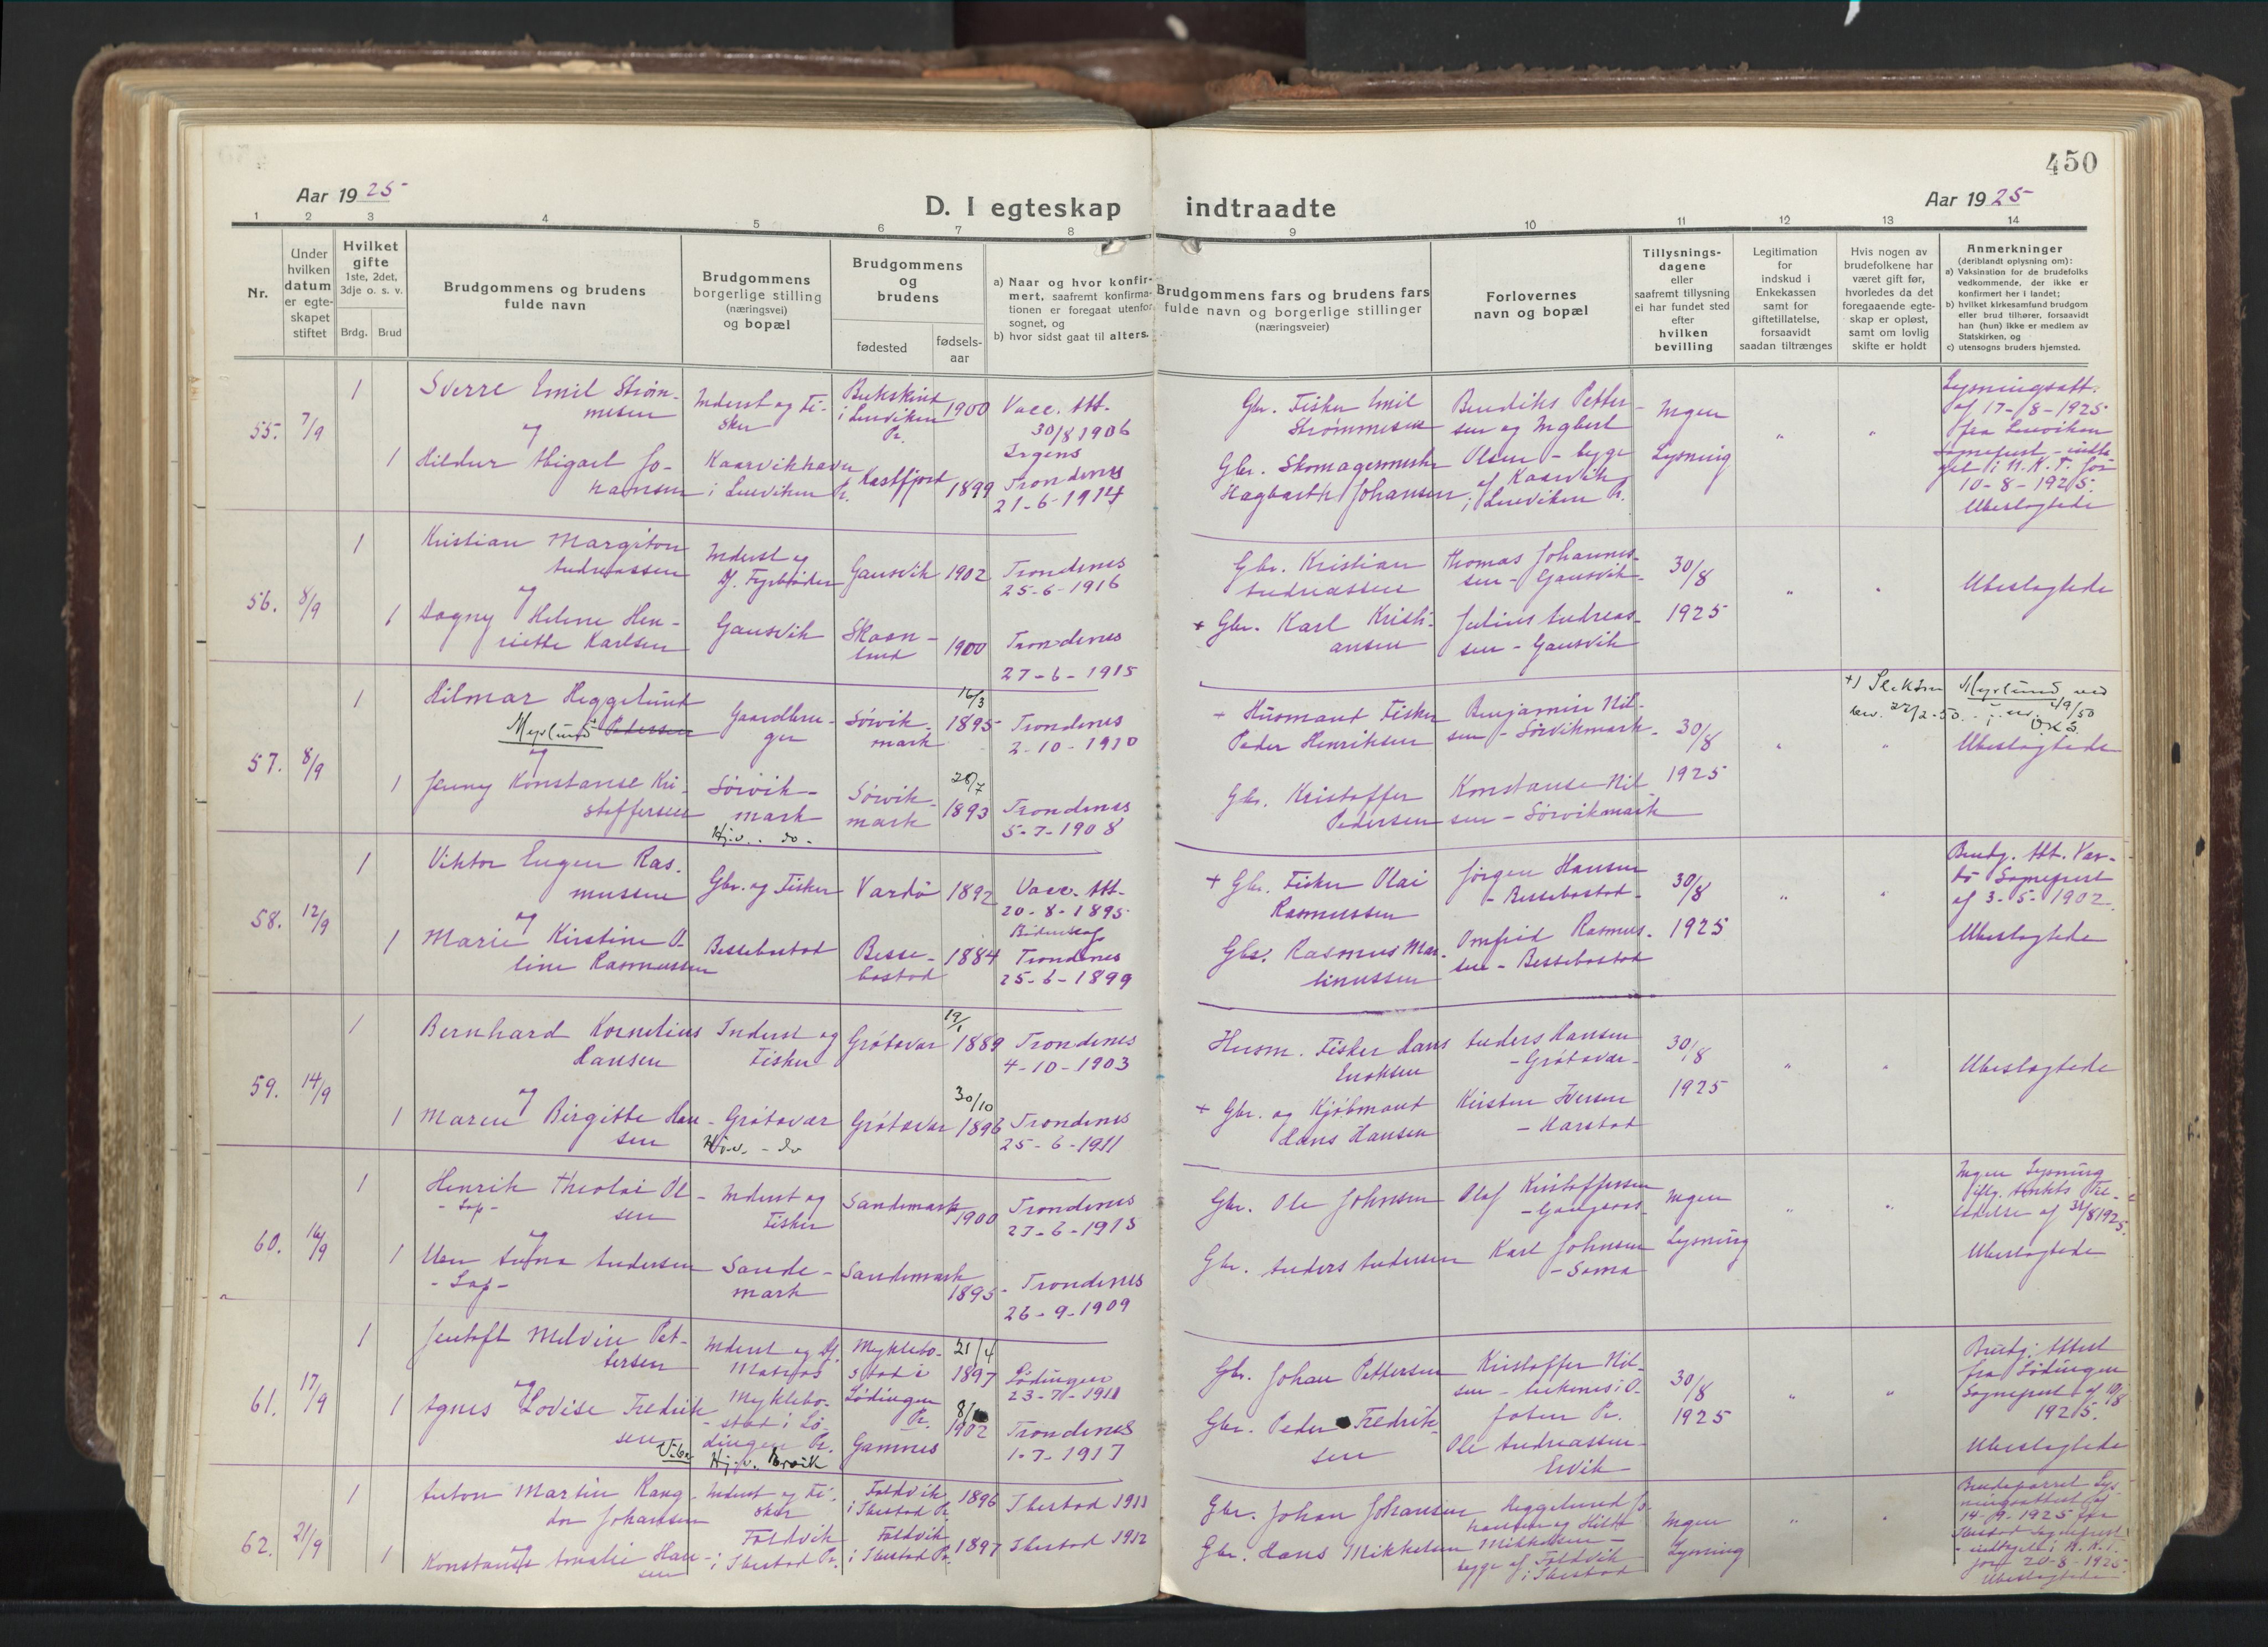 450
Aar 1925
D. I egteskap indtraadte
Aar 1925
1 2 3 4 5 6 7 8 9 10 11 12 13 14
Nr.
Under
hvilken
datum
er egte-
skapet
stiftet
Hvilket
gifte
1ste, 2det,
3dje o. s. v.
Brdg. Brud
Brudgommens og brudens
fulde navn
Brudgommens
borgerlige stilling
(næringsvei)
og bopæl
Brudgommens
og
brudens
fødested
fødsels-
aar
a) Naar og hvor konfir-
mert, saafremt konfirma-
tionen er foregaaet utenfor
sognet, og
b) hvor sidst gaat til alters.
Brudgommens fars og brudens fars
fulde navn og borgerlige stillinger
(næringsveier)
Forlovernes
navn og bopæl
Tillysnings-
dagene
eller
saafremt tillysning
ei har fundet sted
efter
hvilken
bevilling
Legitimation
for
indskud i
Enkekassen
samt for
giftetillatelse,
forsaavidt
saadan tiltrænges
Hvis nogen av
brudefolkene har
været gift før,
hvorledes da det
foregaaende egte-
skap er opløst,
samt om lovlig
skifte er holdt
Anmerkninger
(deriblandt oplysning om):
a) Vaksination for de brudefolks
vedkommende, der ikke er
konfirmert her i landet;
b) hvilket kirkesamfund brudgom
eller brud tilhører, forsaavidt
han (hun) ikke er medlem av
Statskirken, og
c) utensogns bruders hjemsted.
55. 7/9
1 Sverre Emil Strøm-
mesen
og
1 Hildur Abigael Jo-
hansen
Inderst og Fi-
sker
Kaarvikhavn
i Lenviken Pr.
Bukskind
i Lenviken
Pr.
1900
Kastfjord 1899
Vacc. Att.
30/8 1906
Irgens
Trondenes
21-6-1914
Gbr. Fisker Emil
Strømmesen
Gbr. Skomagermester
Hagbarth Johansen
Bendiks Petter-
sen og Ingbert
Olsen - begge
af Kaarvik
i Lenviken Pr.
Ingen
Lysning
Lysningsatt.
af 17-8-1925
fra Lenviken
Sogneprest - indta
get i N.K.T. for
10-8-1925.
Ubeslægtede
56. 8/9
1 Kristian Margiton
Andreassen
og
1 Dagny Helene Hen-
riette Karlsen
Inderst og
Df. Fyrbøder
Gausvik
Gausvik 1902
Skaan-
land 1900
Trondenes
25-6-1916
Trondenes
27-6-1915
Gbr. Kristian
Andreassen
+ Gbr. Karl Kristi-
ansen
Thomas Johannes-
sen - Gausvik
Julius Andreas-
sen - Gausvik
30/8
1925
Ubeslægtede
57. 8/9
1 Hilmar Heggelund
Myrlund Pedersen
og
1 Jenny Konstanse Kri-
stoffersen
Gaardbru-
ger
Sørvik-
mark
Hj.v. do.
Sørvik-
mark
16/3
1895
Sørvik-
mark
28/7
1893
Trondenes
2-10-1910
Trondenes
5-7-1908
+ Husmand Fisker
Peder Henriksen
Gbr. Kristoffer
Pedersen
Benjamin Nil-
sen - Sørvikmark
Konstanse Nil
sen - Sørvikmark
30/8
1925
Myrlund ved
bev. 27/2-50
4/9/50
Ubeslægtede
58. 12/9
1 Viktor Eugen Ras-
mussen
og
1 Marie Kirstine O-
line Rasmussen
Gbr. og Fisker
Bessebostad
Vardø 1892
Besse-
bostad 1884
Vacc. Att.
20-8-1895
Trondenes
25-6-1899
+ Gbr. Fisker Olai
Rasmussen
Gbr. Rasmus Mar-
tinussen
Jørgen Hansen
- Bessebostad -
Omfrid Rasmus-
sen - Bessebostad
30/8
1925
Brudg. Att. Var-
dø Sogneprest
af 3-5-1902.
Ubeslægtede
59. 14/9
1 Bernhard Kornelius
Hansen
og
1 Maren Birgitte Han-
sen
Inderst og
Fisker
Grøtavær
Hj.v. - do
Grøtavær
19/1
1889
Grøtavær
30/10
1896
Trondenes
4-10-1903
Trondenes
25-6-1911
Husm. Fisker Hans
Enoksen
+ Gbr. og Kjøbmand
Hans Hansen
Anders Hansen
- Grøtavær -
Kirsten Iversen
- Harstad
30/8
1925
Ubeslægtede
60. 16/9
1 Henrik Theolai Ol-
- Lap - sen
og
1 Anna Andersen
- Lap -
Inderst og
Fisker
Sande-
mark
Sandemark
1900
Sandemark
1895
Trondenes
27-6-1915
Trondenes
26-9-1909
Gbr. Ole Johnsen
Gbr. Anders Andersen
Olaf Kristoffersen
Karl Johnsen
- Sama
Ingen
Lysning
Ingen Lysning
iflg. Amtets Til-
ladelse af 31/8 1925.
Ubeslægtede
61. 17/9
1 Jentoft Melvin Pet-
tersen
og
1 Agnes Lovise Fredrik-
sen
Inderst og Df.
Matros
Myklebo-
stad i Lø-
dingen Pr.
Myklebo-
stad i
Lødingen
Pr.
21/4
1897
Gamnes
1902
Lødingen
23-7-1911
Trondenes
1-7-1917
Gbr. Johan Pettersen
Gbr. Peder Fredrik-
sen
Kristoffer Nil-
sen - Ankenes i O-
foten Pr.
Ole Andreassen -
Ervik
30/8
1925
Brudg. Attest
fra Lødingen
Sogneprest af 10/8
1925.
Ubeslægtede
62. 21/9
1 Anton Martin Rang-
dor Johansen
og
1 Konstanse Amalie Han-
sen
Inderst og Fi-
sker
Foldvik
i Ibestad Pr.
Foldvik
i Ibestad Pr. 1896
Foldvik
i Ibestad Pr. 1897
Ibestad 1911
Ibestad 1912
Gbr. Johan Johansen
Gbr. Hans Mikkelsen
Heggelund Jo-
hansen og Hilda
Mikkelsen -
begge af Foldvik
i Ibestad
Ingen
Lysning
Brudeparret Lys-
ningsattest af
14-9-1925 fra
Ibestad Sogneprest
- indtaget i N.K.T.
for 20-8-1925
Ubeslægtede